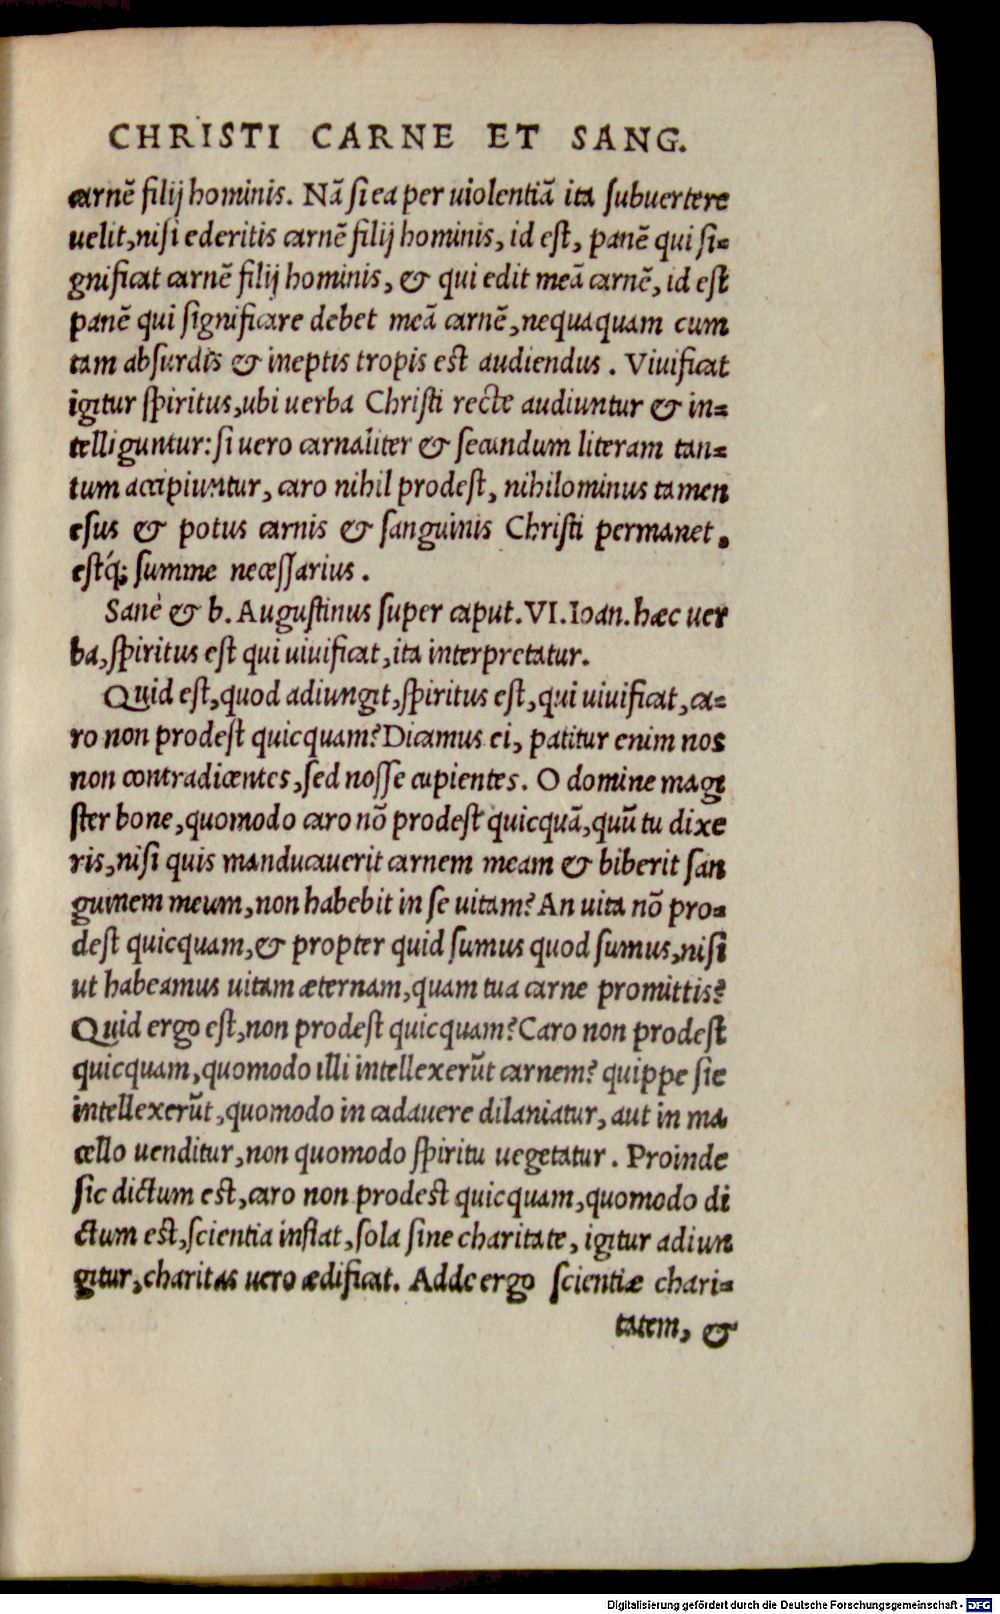 CHRISTI CARNE ET SANG.
carnẽ filij hominis. Nã si ea per uiolentiã ita subuertere
uelit, nisi ederitis carnẽ filij hominis, id est, panẽ qui si-
gnificat carnẽ filij hominis, & qui edit meã carnẽ, id est
panẽ qui significare debet meã carnẽ, nequaquam cum
tam absurdis & ineptis tropis est audiendus. Viuificat
igitur spiritus, ubi uerba Christi recte audiuntur & in-
telliguntur: si uero carnaliter & secundum literam tan-
tum accipiuntur, caro nihil prodest, nihilominus tamen
esus & potus carnis & sanguinis Christi permanet,
estq́; summe necessarius.
Sanè & b. Augustinus super caput. VI. Ioan. hæc uer
ba, spiritus est qui uiuificat, ita interpretatur.
Quid est, quod adiungit, spiritus est, qui uiuificat, ca-
ro non prodest quicquam? Dicamus ei, patitur enim nos
non contradicentes, sed nosse cupientes. O domine magi
ster bone, quomodo caro nõ prodest quicquã, quũ tu dixe
ris, nisi quis manducauerit carnem meam & biberit san
guinem meum, non habebit in se uitam? An uita nõ pro-
dest quicquam, & propter quid sumus quod sumus, nisi
ut habeamus uitam æternam, quam tua carne promittis?
Quid ergo est, non prodest quicquam? Caro non prodest
quicquam, quomodo illi intellexerũt carnem? quippe sic
intellexerũt, quomodo in cadauere dilaniatur, aut in ma
cello uenditur, non quomodo spiritu uegetatur. Proinde
sic dictum est, caro non prodest quicquam, quomodo di
ctum est, scientia inflat, sola sine charitate, igitur adiun
gitur, charitas uero ædificat. Adde ergo scientiæ chari-
tatem, &
Digitalisierung gefördert durch die Deutsche Forschungsgemeinschaft - DFG